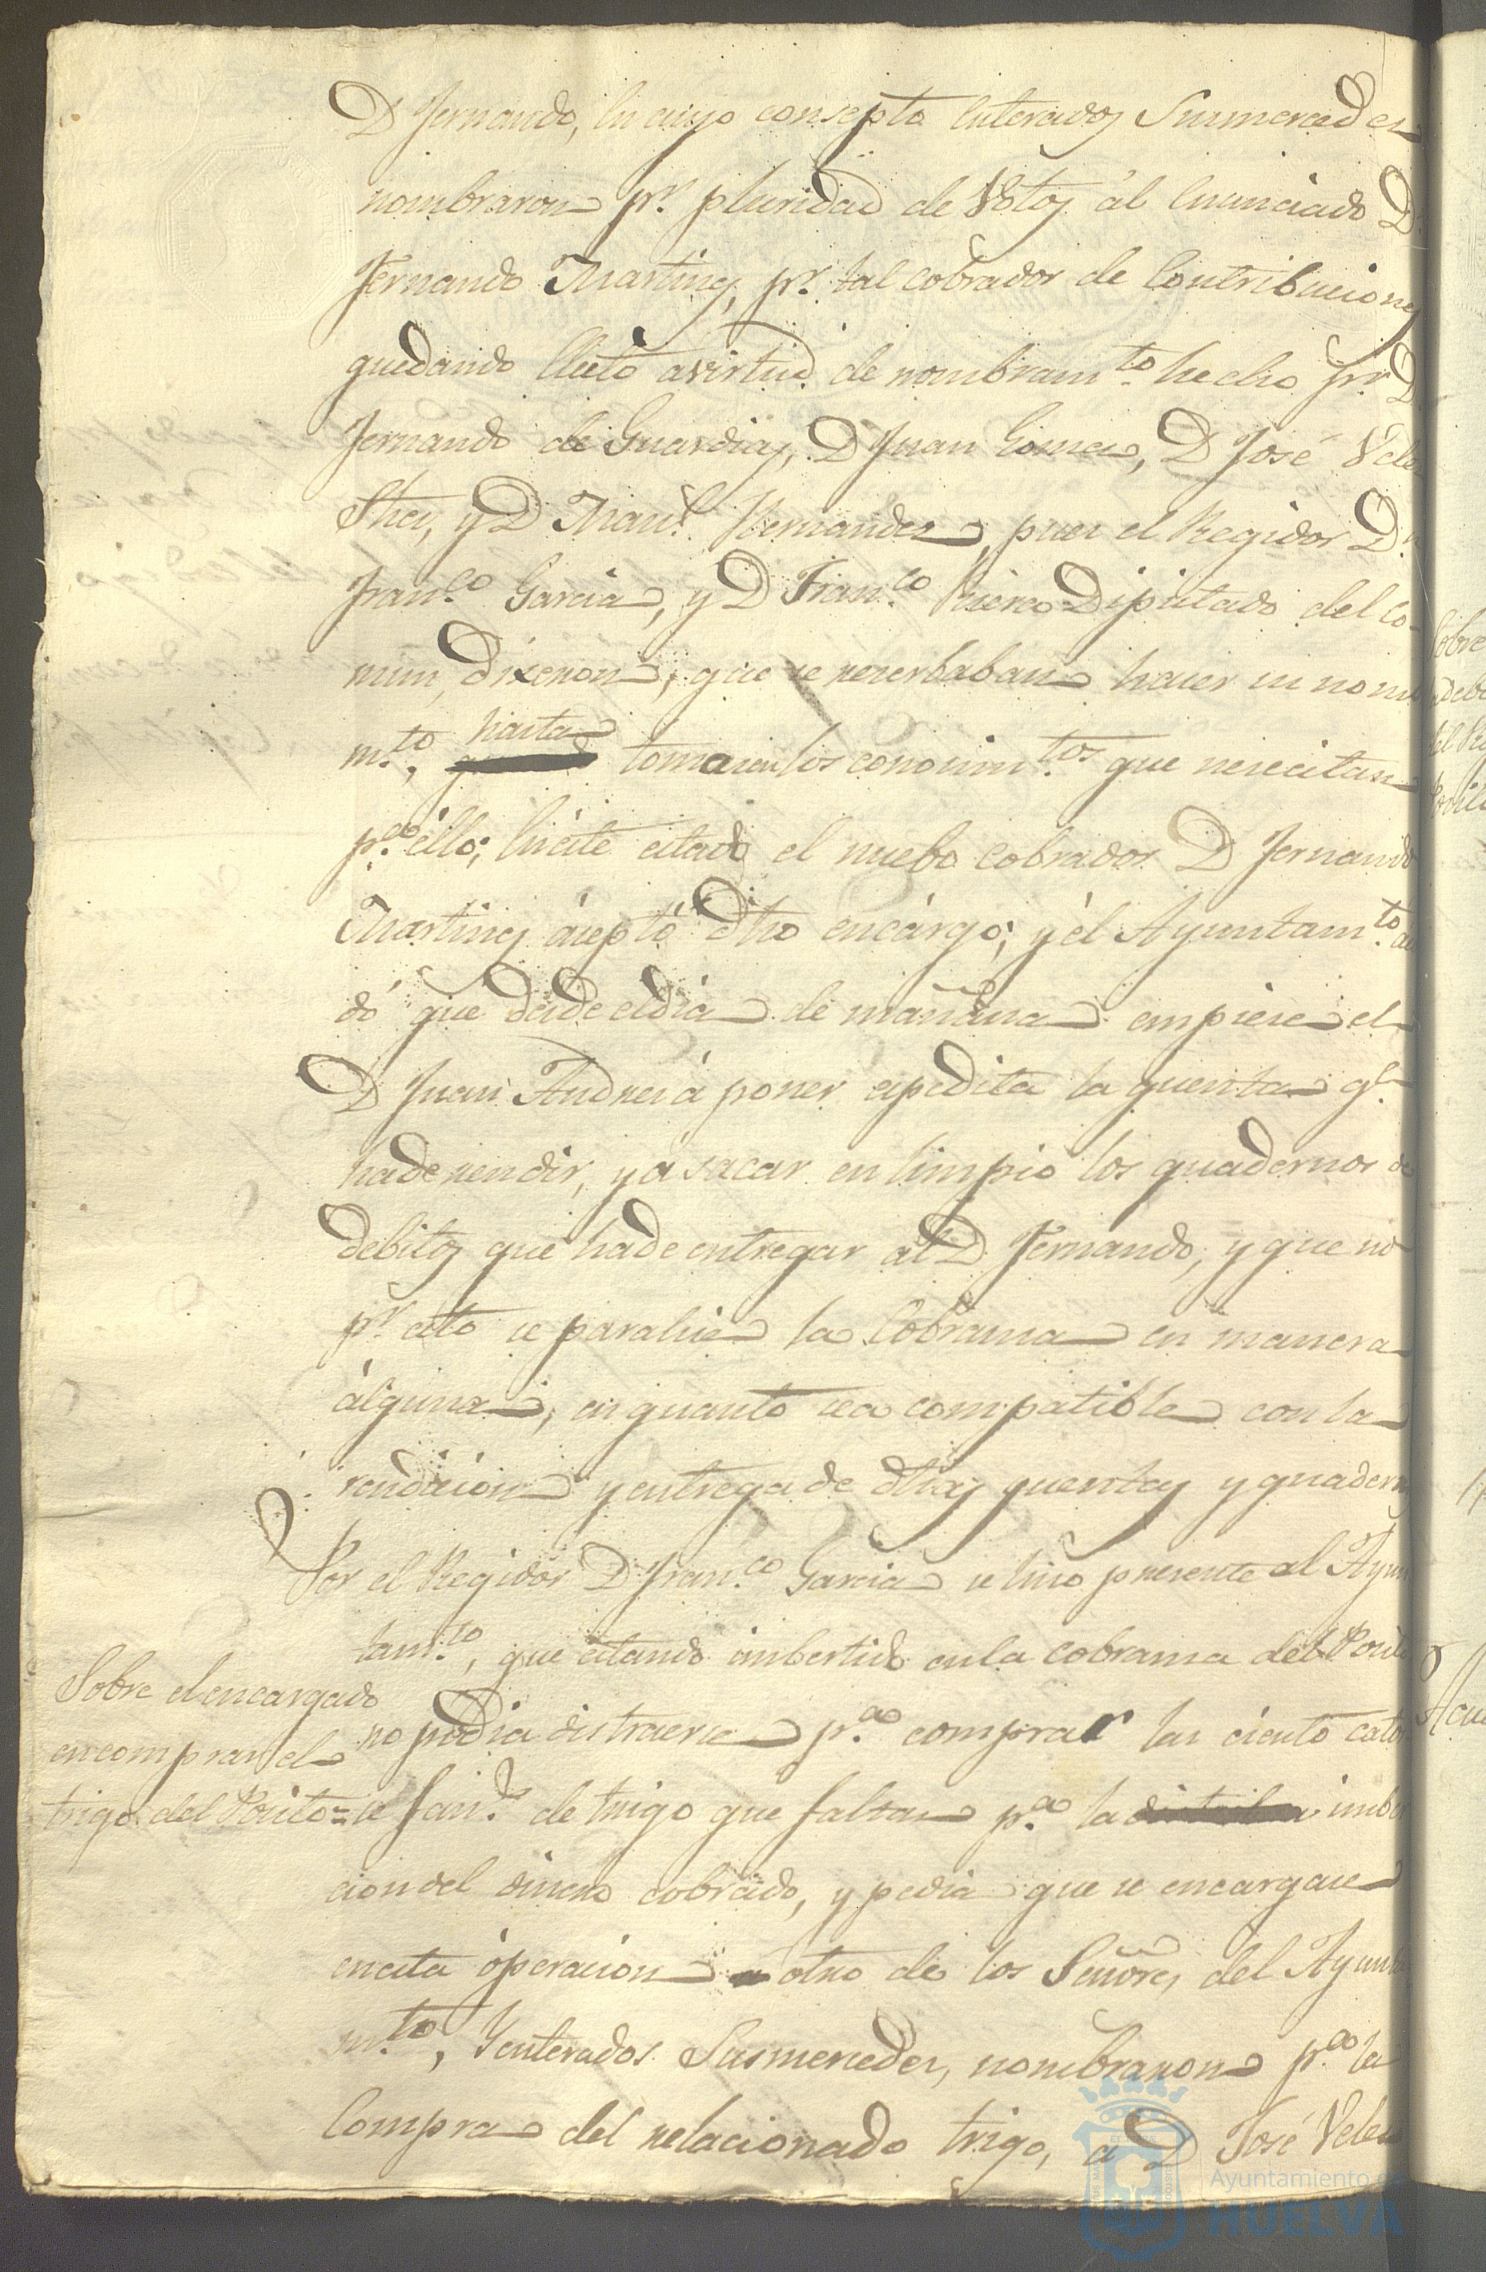 D Fernando, En cuyo consepto Enterados Susmercedes
nombraron pr. pluridad de Votos ál Enunciado D.
Fernando Martines, pr. tal cobrador de Contribuciones
quedando Electo avirtud de nombramto. hecho pr. D.
Fernando de Guardias, D Juan Gomes, D José Veles
Shes, y D Manl. Hernandes, pues el Regidor Dn.
Franco. Garcia, y D Franco. Diputado del Co-
mun, dixeron, que se reserbaban haser su nom
mto., hasta tomasen los conosimtos. que nesecitan
pa. éllo; Enéste estado el nuebo cobrador D Fernando
Martines áseptó dho encárgo; y él Ayuntamto.
dó que desde el dia de mañana empiese el
D Juan Andres á poner espedita la quenta qe.
ha de rendir, y á sacar en limpio los quadernos de
debitos que ha de entregar al D Fernando, y que no
pr. esto se paralise la Cobransa en manera
álguna, en quanto sea compatible con la
rendision y entrega de dhas quentas y quadernos
Por el Regidor D Franco. Garcia se hiso presente al Ayun
tamto., que estando imbertido en la cobransa del Posito
no podia distraerse pa. comprar las ciento cator
se fans. de trigo que faltan pa. la imber
cion del dinero cobrado, y pedia que se encargase
en esta óperasion a otro de los Señores del Ayunta
mto., Y enterados Susmersedes, nombraron pa. la
Compra del relacionado trigo, a D José Veles
Sobre el encargado
en comprar el
trigo del Posito=
Ayuntamiento de
HUELVA